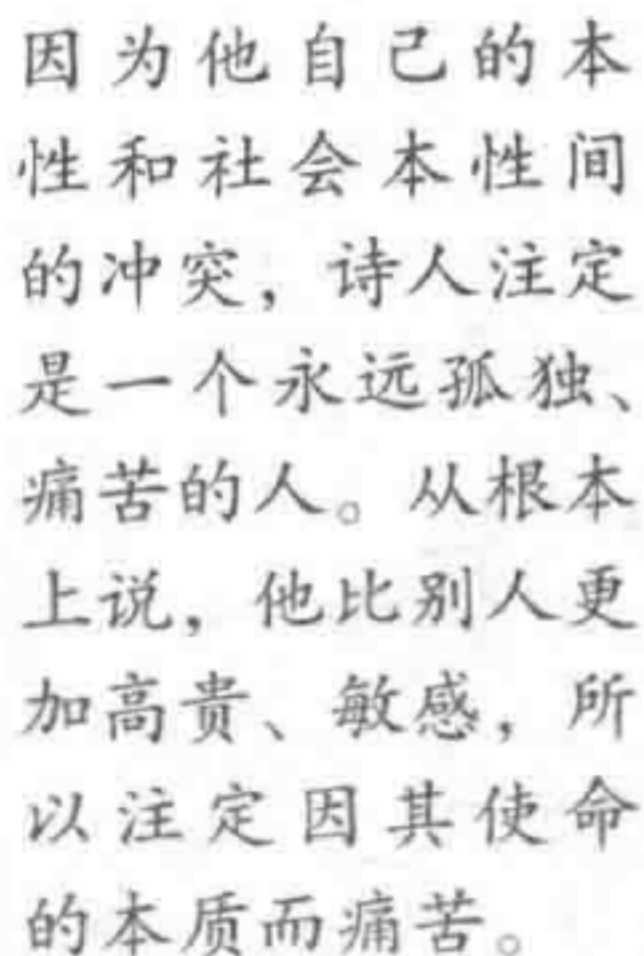 因为他自己的本
性和社会本性间
的冲突，诗人注定
是一个永远孤独、
痛苦的人。从根本
上说，他比别人更
加高贵、敏感，所
以注定因其使命
的本质而痛苦。